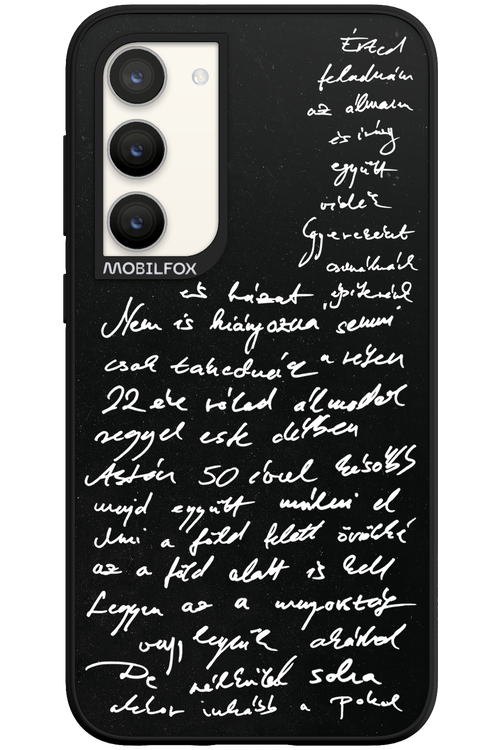 Érted
feladnám
az álmaim
és irány
együtt
vidék
Gyerekeket
csinálnánk
és házat építenénk
Nem is hiányozna semmi
csak tehednék a részen
22 éve rólad álmodok
reggel este délben
Aztán 50 évvel később
majd együtt múlni el
Ami a föld felett örökké
az a föld alatt is kell
Legyen az a mennyország
vagy legyünk akárhol
De nélküled soha
akkor inkább a pokol
MOBILFOX